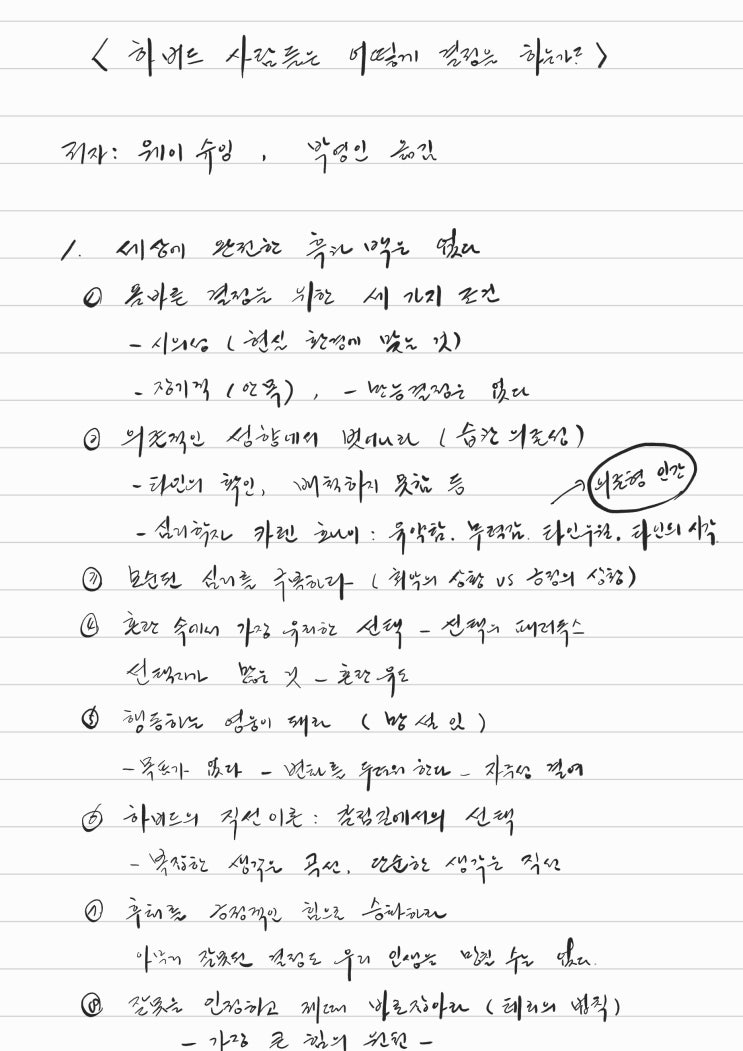 < 하버드 사람들은 어떻게 결정을 하는가? >
저자: 웨이 슈잉, 박영인 옮김
1. 세상에 완전한 흑과 백은 없다
① 올바른 결정을 위한 세 가지 조건
- 시의성 (현실 환경에 맞는 것)
- 장기적 (안목), - 만능결정은 없다
② 의존적인 성향에서 벗어나라 (습관 의존성)
- 타인의 확인, 배척하지 못함 등
→ 의존형 인간
- 심리학자 카렌 호나이 : 유약함. 무력감. 타인우월. 타인의 시각
③ 모순된 심리를 극복하라 (최악의 상황 vs 긍정의 상황)
④ 혼란 속에서 가장 유리한 선택 - 선택의 패러독스
선택지가 많은 것 - 혼란 유도
⑤ 행동하는 영웅이 돼라 (망설임)
- 목표가 없다 - 변화를 두려워 한다 - 자주성 결여
⑥ 하버드의 직선이론 : 갈림길에서의 선택
- 복잡한 생각은 곡선, 단순한 생각은 직선
⑦ 후회를 긍정적인 힘으로 승화하라
아무리 잘못된 결정도 우리 인생을 망칠 수는 없다.
⑧ 잘못을 인정하고 제때 바로잡아라 (테리의 법칙)
- 가장 큰 힘의 원천 -